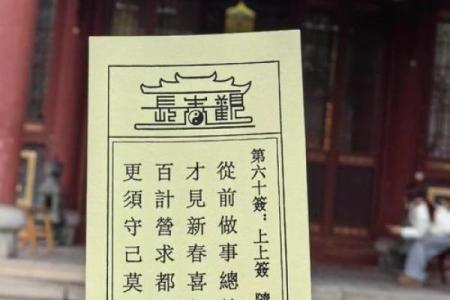 長春觀
第六十簽：上上簽
從前做事總
才見新春喜
百計營求都
更須守己莫